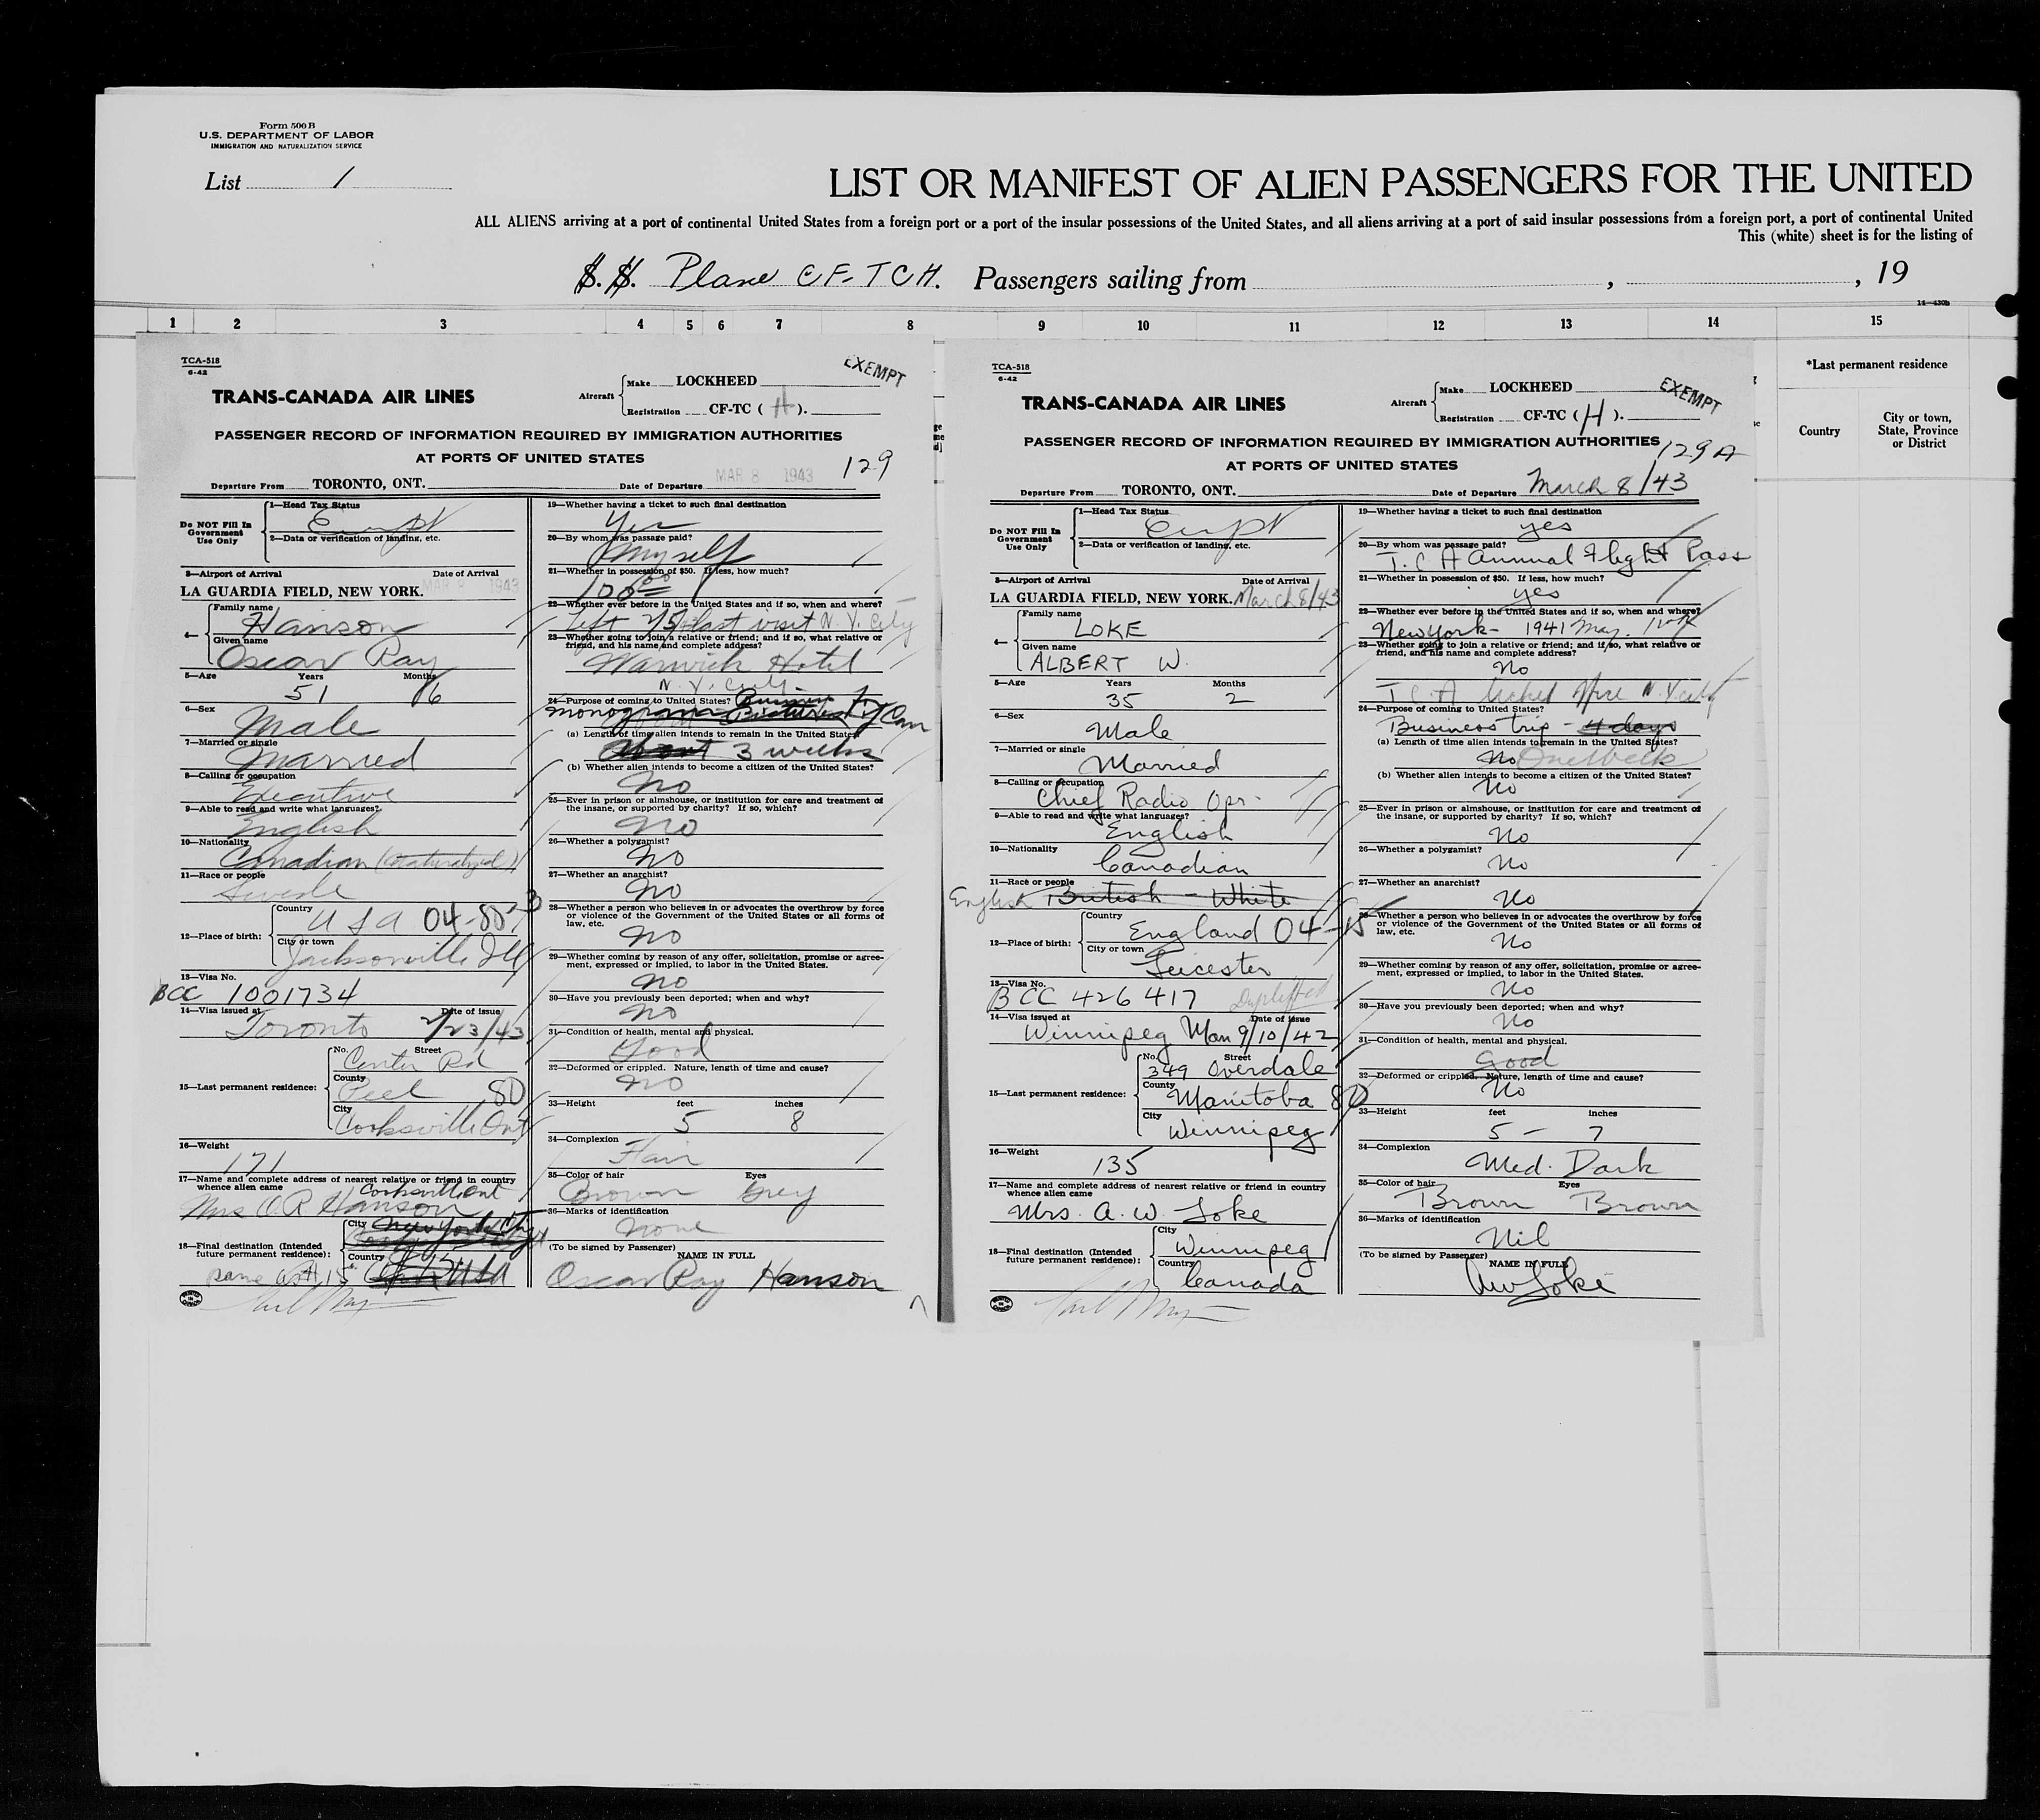 Form 500 B
U.S. DEPARTMENT OF LABOR
IMMIGRATION AND NATURALIZATION SERVICE
List 1
LIST OR MANIFEST OF ALIEN PASSENGERS FOR THE UNITED
ALL ALIENS arriving at a port of continental United States from a foreign port or a port of the insular possessions of the United States, and all aliens arriving at a port of said insular possessions from a foreign port, a port of continental United
This (white) sheet is for the listing of
S.S. Plane CF-TCH. Passengers sailing from , , 19
1 2 3 4 5 6 7 8 9 10 11 12 13 14 15
*Last permanent residence
Country
City or town, State, Province or District
TCA-518
6-42
EXEMPT
TRANS-CANADA AIR LINES
Aircraft
Make LOCKHEED
Registration CF-TC ( H ).
PASSENGER RECORD OF INFORMATION REQUIRED BY IMMIGRATION AUTHORITIES
AT PORTS OF UNITED STATES
129
Departure From TORONTO, ONT. Date of Departure MAR 8 1943
Do NOT Fill In Government Use Only
1—Head Tax Status
2—Data or verification of landing, etc.
3—Airport of Arrival Date of Arrival
LA GUARDIA FIELD, NEW YORK. MAR 8 1943
4— Family name Hanson
Given name Oscar Ray
5—Age Years 51 Months 6
6—Sex Male
7—Married or single Married
8—Calling or occupation Executive
9—Able to read and write what languages? English
10—Nationality Canadian (naturalized)
11—Race or people Swede
12—Place of birth: Country USA 04-80
City or town Jacksonville Ill
13—Visa No.
BCC 1001734
14—Visa issued at Toronto Date of issue 2/23/43
15—Last permanent residence: No. Street Center Rd
County Peel 80
City Cooksville Ont
16—Weight 171
17—Name and complete address of nearest relative or friend in country whence alien came
Cooksville Ont
Mrs O R Hanson
18—Final destination (Intended future permanent residence): City New York City
Country USA
same as # 15
19—Whether having a ticket to such final destination
Yes
20—By whom was passage paid?
Myself
21—Whether in possession of $50. If less, how much?
100.00
22—Whether ever before in the United States and if so, when and where?
last visit N. Y. City
23—Whether going to join a relative or friend; and if so, what relative or friend, and his name and complete address?
Warwick Hotel
N. Y. City
24—Purpose of coming to United States?
Monogram Pictures of Can
(a) Length of time alien intends to remain in the United States
About 3 weeks
(b) Whether alien intends to become a citizen of the United States?
No
25—Ever in prison or almshouse, or institution for care and treatment of the insane, or supported by charity? If so, which?
No
26—Whether a polygamist?
No
27—Whether an anarchist?
No
28—Whether a person who believes in or advocates the overthrow by force or violence of the Government of the United States or all forms of law, etc.
No
29—Whether coming by reason of any offer, solicitation, promise or agreement, expressed or implied, to labor in the United States.
No
30—Have you previously been deported; when and why?
No
31—Condition of health, mental and physical.
Good
32—Deformed or crippled. Nature, length of time and cause?
No
33—Height feet 5 inches 8
34—Complexion Fair
35—Color of hair Brown Eyes Grey
36—Marks of identification
None
(To be signed by Passenger) NAME IN FULL
Oscar Ray Hanson
TCA-518
6-42
EXEMPT
TRANS-CANADA AIR LINES
Aircraft
Make LOCKHEED
Registration CF-TC ( H ).
PASSENGER RECORD OF INFORMATION REQUIRED BY IMMIGRATION AUTHORITIES
AT PORTS OF UNITED STATES
129 A
Departure From TORONTO, ONT. Date of Departure March 8/43
Do NOT Fill In Government Use Only
1—Head Tax Status
2—Data or verification of landing, etc.
3—Airport of Arrival Date of Arrival
LA GUARDIA FIELD, NEW YORK. March 8/43
4— Family name LOKE
Given name ALBERT W.
5—Age Years 35 Months 2
6—Sex Male
7—Married or single Married
8—Calling or occupation Chief Radio Opr.
9—Able to read and write what languages? English
10—Nationality Canadian
11—Race or people
English British - White
12—Place of birth: Country England 04-15
City or town Leicester
13—Visa No.
BCC 426417
14—Visa issued at Winnipeg Man Date of issue 9/10/42
15—Last permanent residence: No. Street 349 Overdale
County Manitoba 80
City Winnipeg
16—Weight 135
17—Name and complete address of nearest relative or friend in country whence alien came
Mrs. A. W. Loke
18—Final destination (Intended future permanent residence): City Winnipeg
Country Canada
19—Whether having a ticket to such final destination
yes
20—By whom was passage paid?
T.C.A Annual Flight Pass
21—Whether in possession of $50. If less, how much?
yes
22—Whether ever before in the United States and if so, when and where?
New York - 1941 May.
23—Whether going to join a relative or friend; and if so, what relative or friend, and his name and complete address?
No
T C A Ticket N. Y. City
24—Purpose of coming to United States?
Business trip - 4 days
(a) Length of time alien intends to remain in the United States?
No One Week
(b) Whether alien intends to become a citizen of the United States?
No
25—Ever in prison or almshouse, or institution for care and treatment of the insane, or supported by charity? If so, which?
No
26—Whether a polygamist?
No
27—Whether an anarchist?
No
28—Whether a person who believes in or advocates the overthrow by force or violence of the Government of the United States or all forms of law, etc.
No
29—Whether coming by reason of any offer, solicitation, promise or agreement, expressed or implied, to labor in the United States.
No
30—Have you previously been deported; when and why?
No
31—Condition of health, mental and physical.
Good
32—Deformed or crippled. Nature, length of time and cause?
No
33—Height feet 5 - inches 7
34—Complexion
Med. Dark
35—Color of hair Brown Eyes Brown
36—Marks of identification
Nil
(To be signed by Passenger) NAME IN FULL
AW Loke